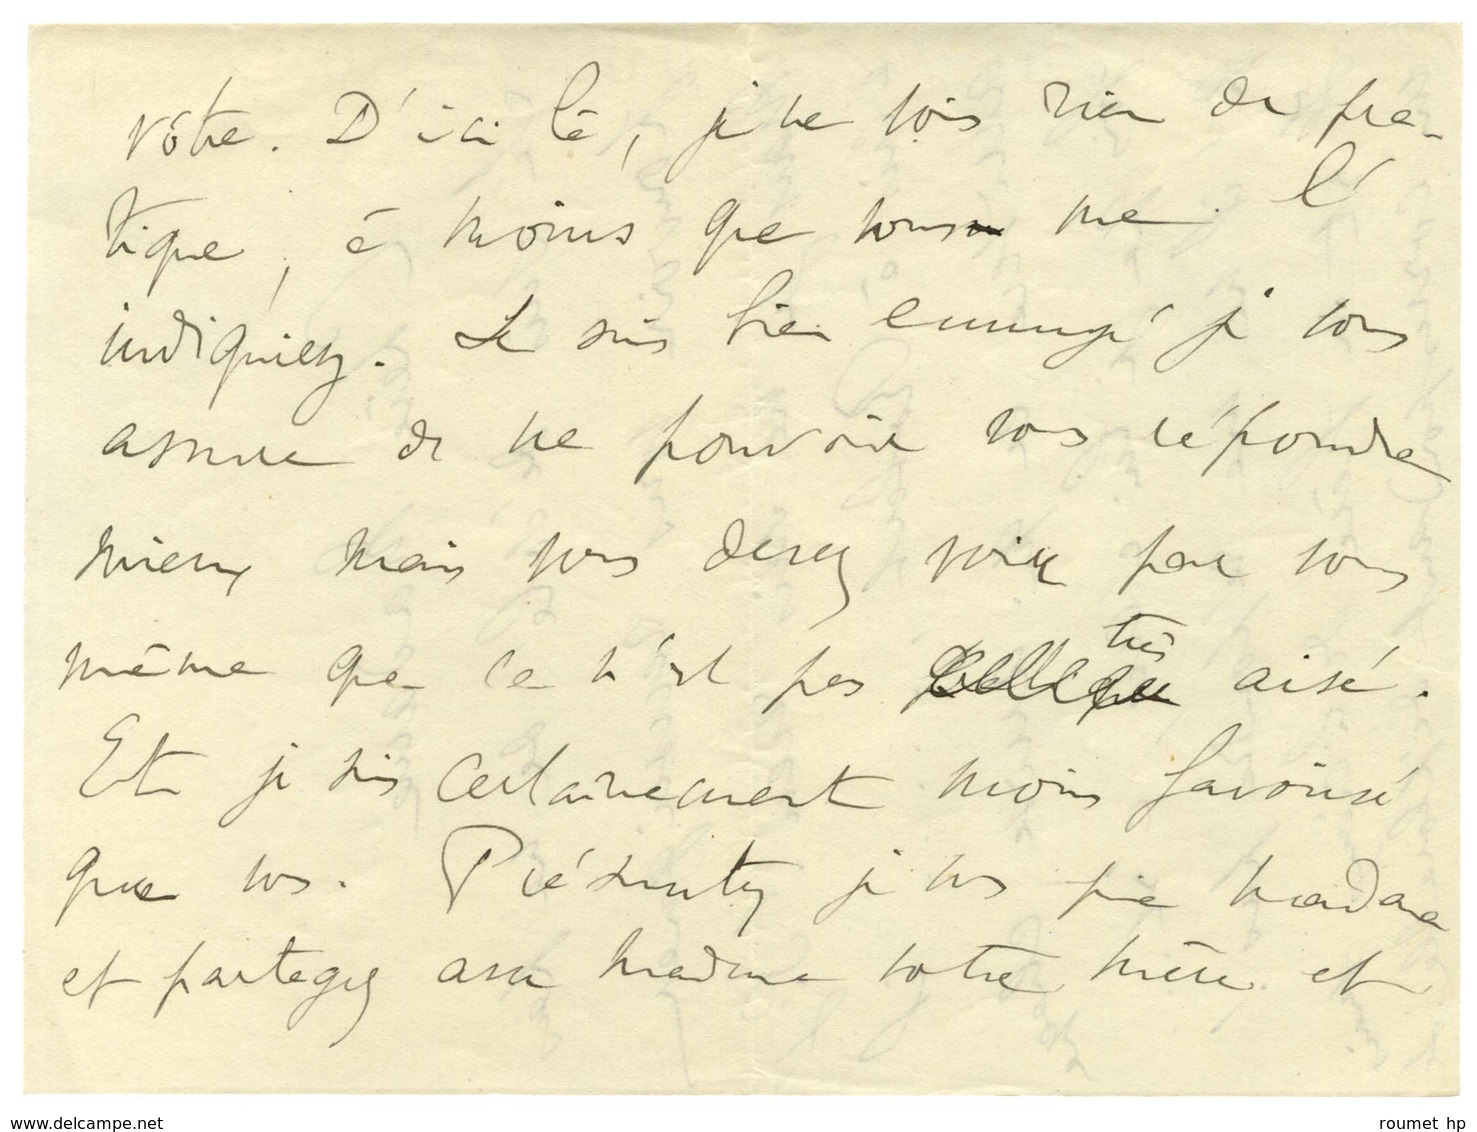 vôtre. D'ici là, je ne vois rien de pra-
tique, à moins que vous me l'
indiquiez. Je suis bien ennuyé je vous
assure de ne pouvoir vous répondre
mieux mais vous devez voir par vous
même que ce n'est pas très aisé.
Et je suis certainement moins favorisé
que vous. Présentez je vous prie Madame
et partagez avec Madame votre mère et
www.delcampe.net
roumet hp